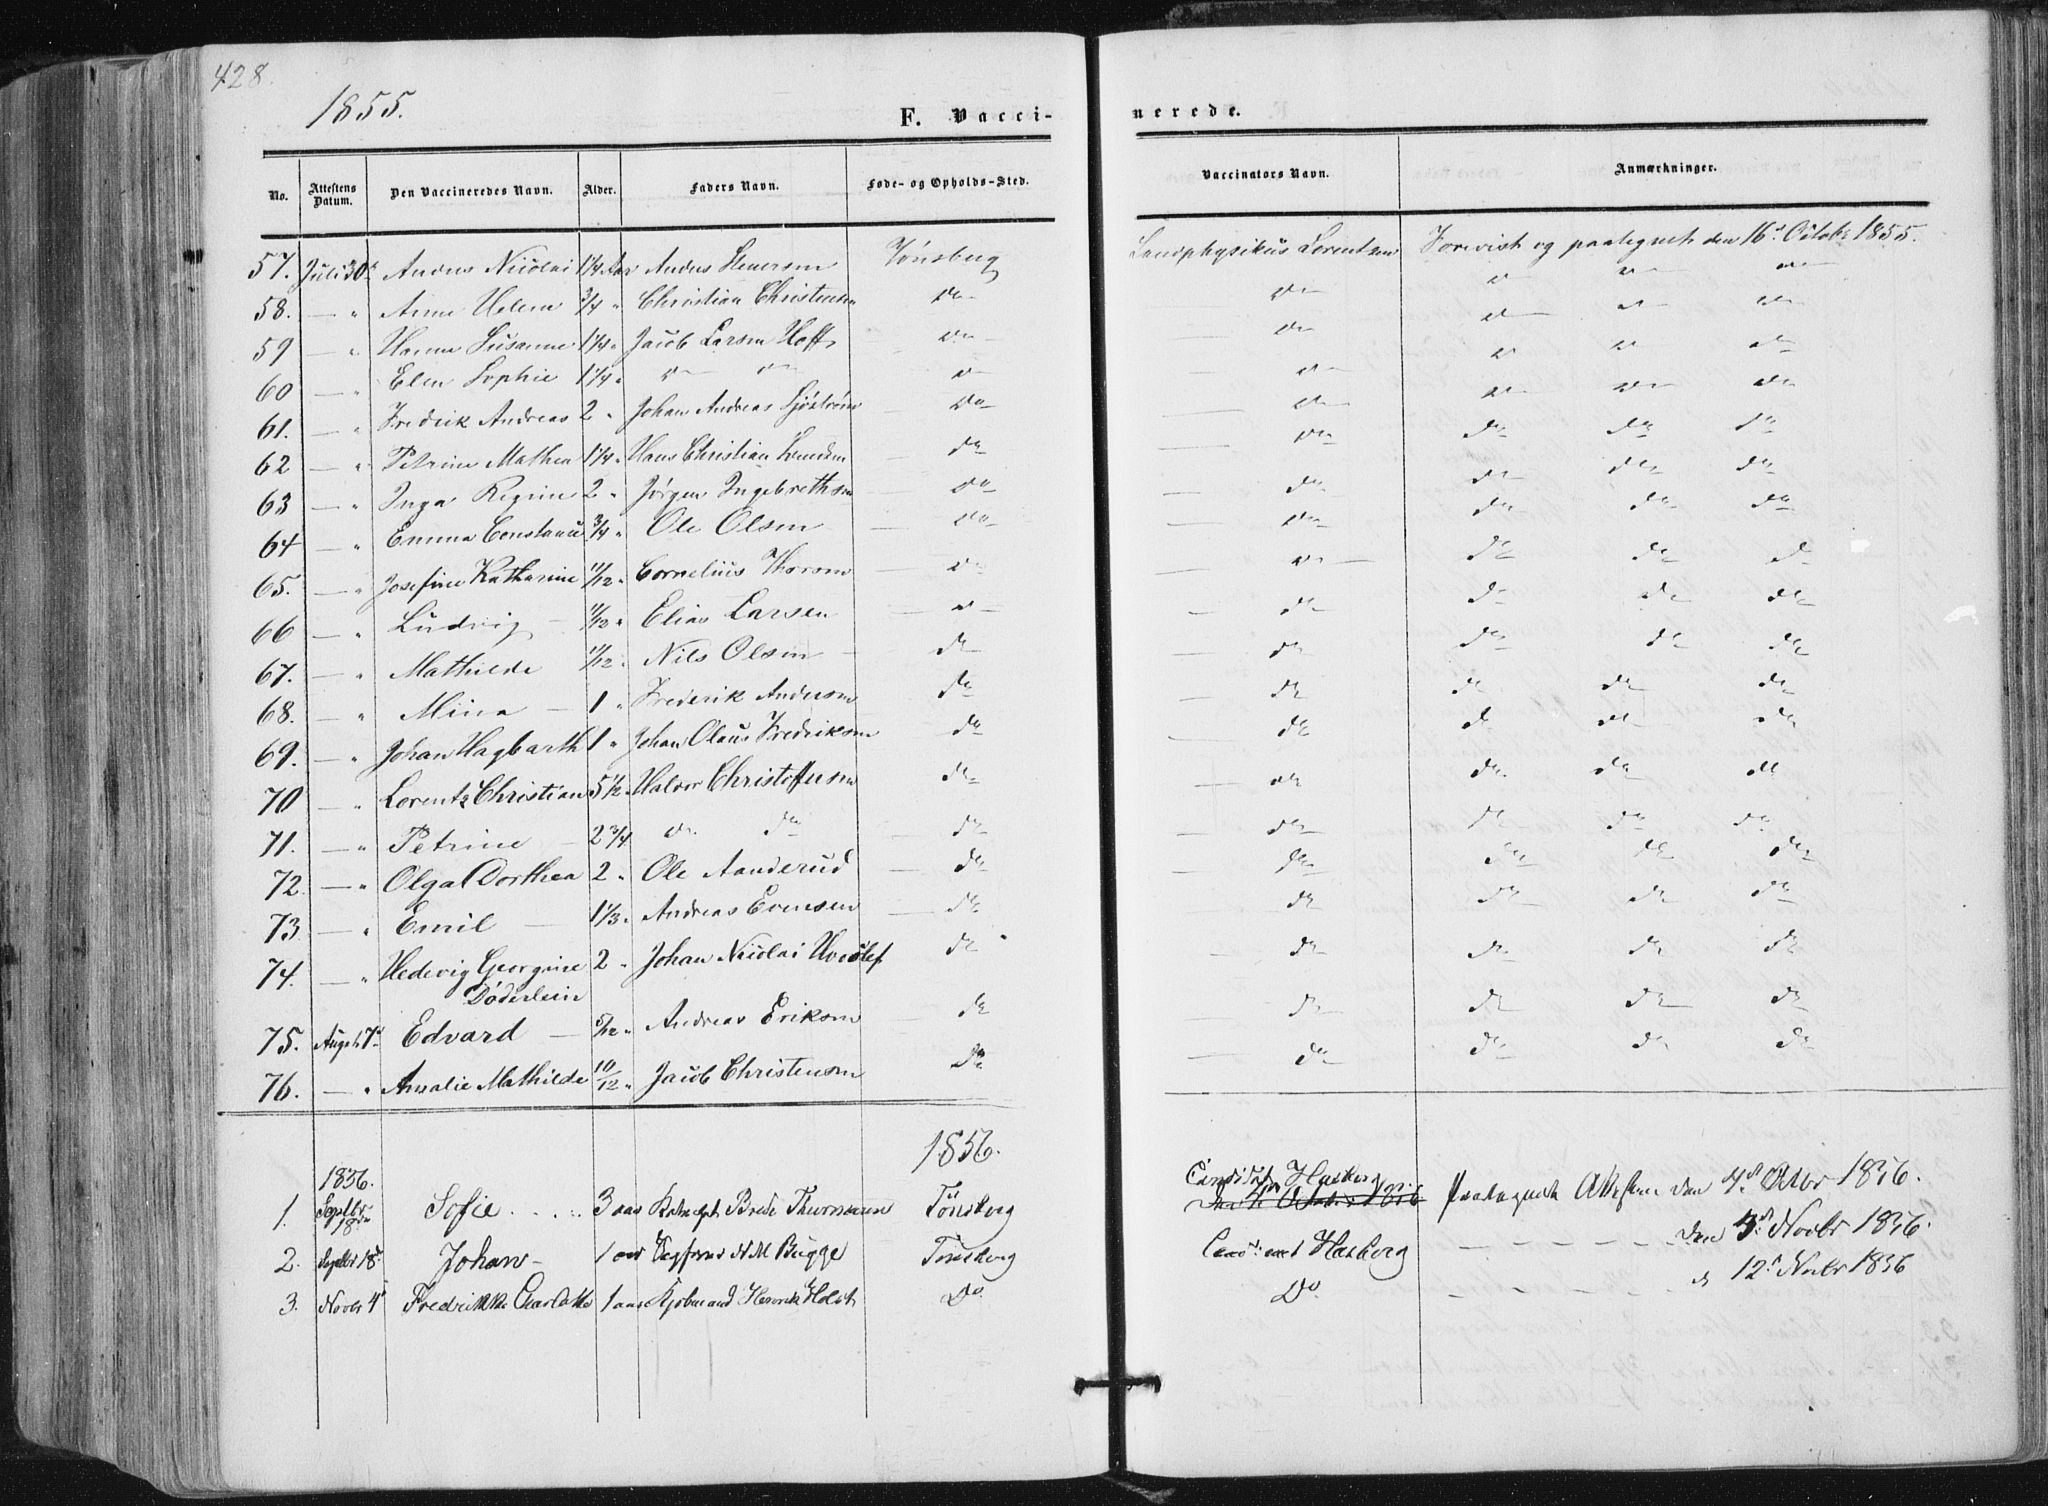 428.
1855.
F. Vaccinerede.
No. Attestens Datum. Den Vaccineredes Navn. Alder. Faders Navn. Føde- og Opholds-Sted. Vaccinators Navn. Anmærkninger.
57. Juli 30d Anders Nicolai 1 1/4 Aar Anders Iversen Tönsberg Landphysikus Lorentzen Forevist og paategnet den 16d Octobr 1855.
58. — " Anne Helene 3/4 " Christian Christensen do do do do do
59 — " Hanne Susanne 1 1/4 " Jacob Larsen Hoff do do do do do
60 — " Elen Sophie 1 1/4 " do do do do do do do
61. — " Fredrik Andreas 2 " Johan Andreas Sjöström do do do do do
62 — " Petrine Mathea 1 1/4 " Hans Christian do do do do do
63 — " Inga Regine 2 " Jørgen Ingebrethsen do do do do do
64 — " Emma Constance 3/4 " Ole Olsen do do do do do
65. — " Josefine Katharine 11/12 " Cornelius Thorsen do do do do do
66 — " Ludvig — 11/12 " Elias Larsen do do do do do
67. — " Mathilde 11/12 " Nils Olsen do do do do do
68. — " Mina — 1 " Frederik Andersen do do do do do
69. — " Johan Hagbarth 1 " Johan Olaus Fredriksen do do do do do
70 — " Lorentz Christian 5 1/2 " Halvor Christoffersen do do do do do
71. — " Petrine — 2 3/4 do do do do do do do
72. — " Olga Dorthea 2 " Ole Aanderud do do do do do
73 — " Emil — 1 1/3 " Andreas Evensen do do do do do
74. — " Hedevig Georgine 2 " Johan Nicolai do do do do do
Döderlein
75. Augst 7d Edvard — 5/12 " Andreas Eriksen do do do do do
76. — " Amalie Mathilde 10/12 " Jacob Christensen do do do do do
1856.
1856.
1. Septbr 18de Sofie . . . . 3 aar Brede Thurmann Tönsberg Candidat Hasberg Paategnet Attesten den 4d Octbr 1856.
den 4de October 1856
2. Septbr 18d Johan — 1 aar N M Bugge Tönsberg Cand. med Hasberg — — — — den 3d Novbr 1856.
3. Novbr 4d Fredrikke Charlotte 1 aar Kjøbmand Henrik Holst Do Do — — — — d 12d Novbr 1856